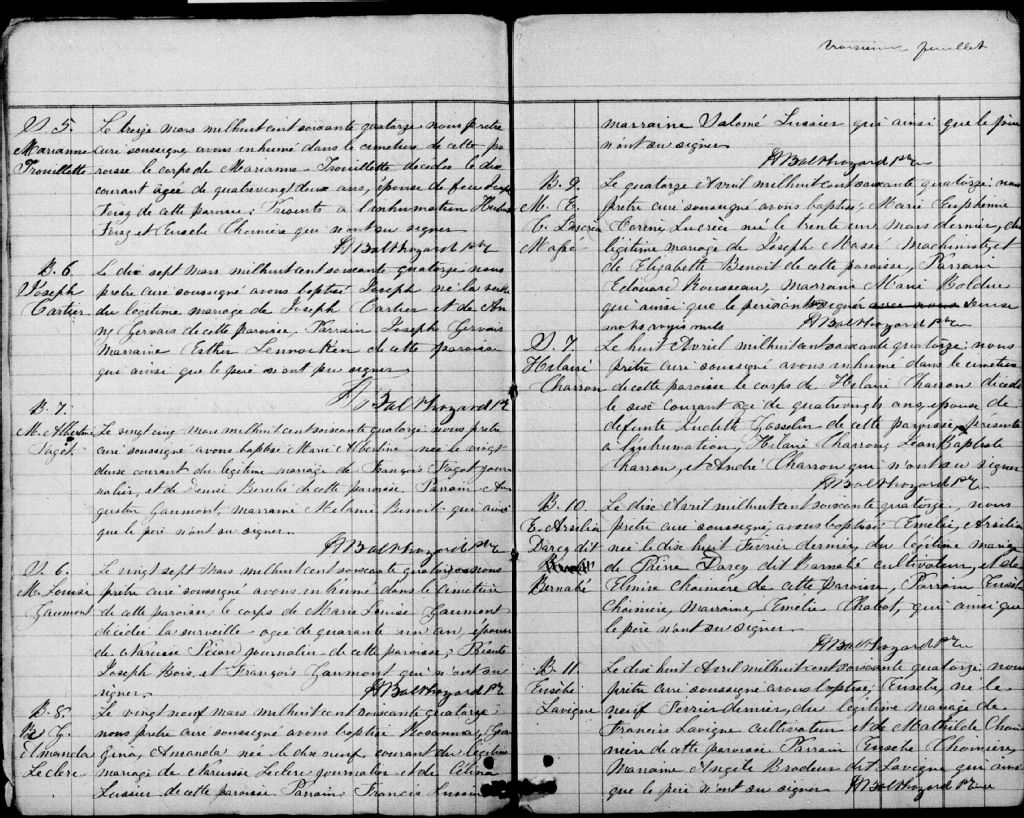 troisieme feuillet
S. 5. Le treize mars mil huit cent soixante quatorze nous pretre
Marianne curé soussigné avons inhumé dans le cimetiere de cette pa
Trouillette roisse le corps de Marianne Trouillette decedée le dix
courant agée de quatrevingt deux ans, epouse de feu
Foisy de cette paroisse; Présents a l'inhumation
Foisy et Eusebe Choiniere qui n'ont su signer
Balthazard Ptre
B. 6. Le dix sept mars mil huit cent soixante quatorze nous
Joseph pretre curé soussigné avons baptisé Joseph né la veille
Cartier du legitime mariage de Joseph Cartier et de An
ny Gervais de cette paroisse, Parrain Joseph Gervais
Marraine Esther de cette paroisse
qui ainsi que le pere n'ont pu signer
Balthazard Pt
B. 7.
M. Albertine Le vingt cinq mars mil huit cent soixante quatorze nous pretre
Pagot curé soussigné avons baptisé Marie Albertine née le vingt
deux courant du légitime mariage de François Pagot jour
nalier, et de Denise Berubé de cette paroisse Parrain Au
gustin Gaumont, marraine Melanie Benoit qui ainsi
que le pere n'ont su signer.
Balthazard Ptre
S. 6. Le vingt sept mars mil huit cent soixante quatorze nous
M. Louise pretre curé soussigné avons inhumé dans le cimetiere
Gaumont de cette paroisse, le corps de Marie Louise Gaumont
décédée la surveille agée de quarante un an, épouse
de Narcisse Picaré journalier de cette paroisse; Présents
Joseph Bois, et François Gaumont qui n'ont su
signer. Balthazard Pt
B. 8. Le vingt neuf mars mil huit cent soixante quatorze
R. G. nous pretre curé soussigné avons baptisé Rosanna, Geor
Amanda gina, Amanda née le dix neuf courant du legitime
Leclerc mariage de Narcisse Leclerc journalier et de Célina
Lussier de cette paroisse Parrain Francis Lussier
marraine Salomé Lussier qui ainsi que le père
n'ont su signer
Balthazard Ptre
B. 9. Le quatorze Avril mil huit cent soixante quatorze nous
M. E. prêtre curé soussigné avons baptisé Marie Euphemie
C. Lucrèce Corine Lucrèce née le trente un Mars dernier, du
Massé légitime mariage de Joseph Massé Machiniste, et
de Elizabeth Benoit de cette paroisse, Parrain
Edouard Rousseau, Marraine Marie Bolduc
qui ainsi que le père ont signé avec nous
mots rayés nuls Balthazard Ptre
S. 7. Le huit Avril mil huit cent soixante quatorze nous
Hilaire prêtre curé soussigné avons inhumé dans le cimetiere
Charron de cette paroisse le corps de Hilaire Charron décédé
le six courant agé de quatrevingts ans, epoux de
defunte Judith Gosselin de cette paroisse, présents
a l'inhumation, Hilaire Charron, Jean Baptiste
Charron, et André Charron qui n'ont su signer
Balthazard Ptre
B. 10. Le dix Avril mil huit cent soixante quatorze, nous
E. Arsélia prêtre curé soussigné, avons baptisé Emelie, Arsélia
Darcy dit née le dix huit Fevrier dernier, du légitime mariage
de Pierre Darcy dit Bernabé cultivateur, et de
Bernabé Elmire Choiniere de cette paroisse, Parrain Eusebe
Choiniere, Marraine, Emelie Chabot, qui ainsi que
le père n'ont su signer.
Balthazard Ptre
B. 11. Le dix huit Avril mil huit cent soixante quatorze nous
Eusebe prêtre curé soussigné avons baptisé, Eusebe, né le
Lavigne neuf Fevrier dernier, du légitime mariage de
Francis Lavigne cultivateur et de Mathilde Choi
niere de cette paroisse Parrain Eusebe Choiniere,
Marraine Angèle Brodeur dit Lavigne qui ainsi
que le père n'ont su signer Balthazard Ptre